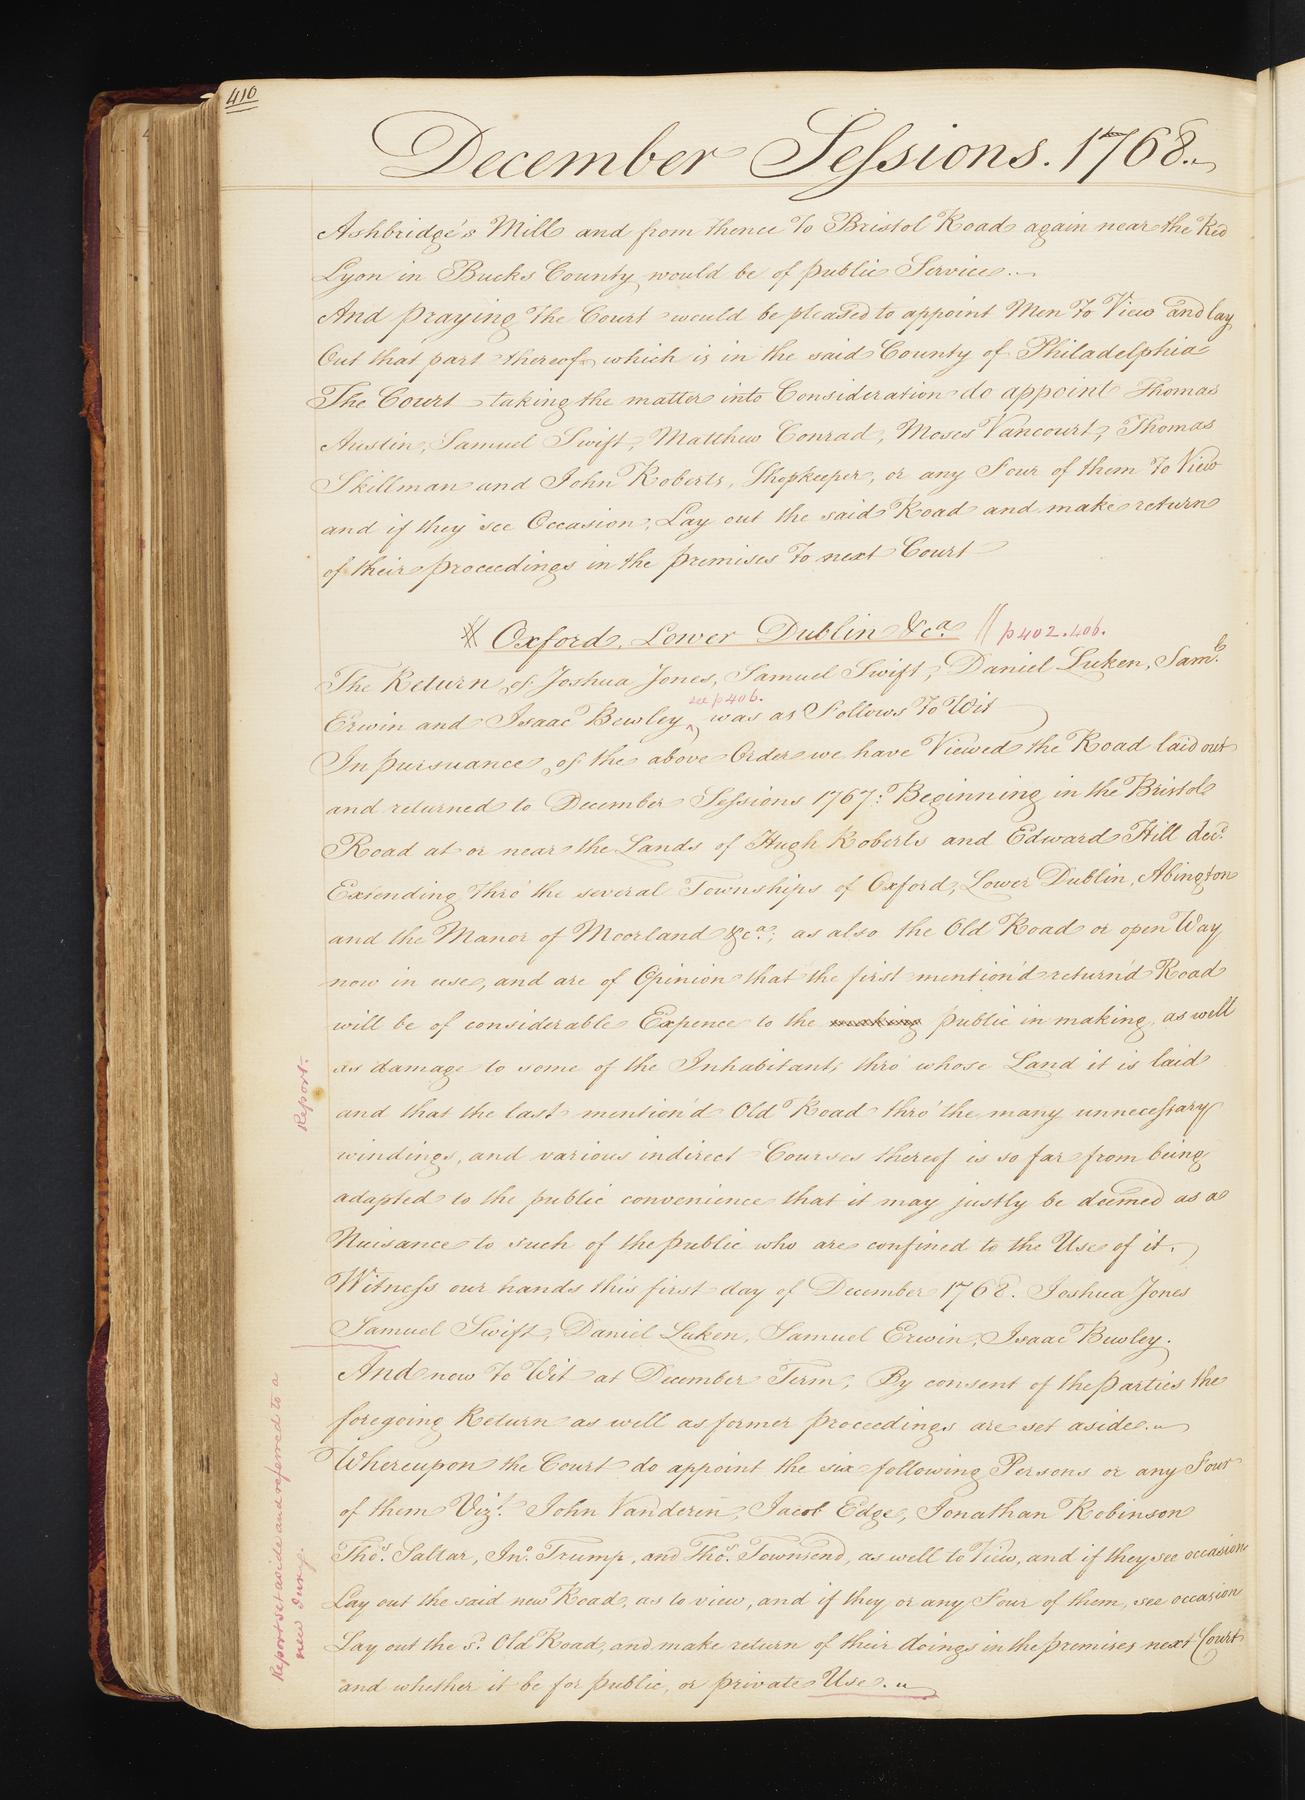 410
December Sessions. 1768.
Ashbridge's Mill and from thence To Bristol Road again near the Red
Lyon in Bucks County would be of public Service.
And praying The Court would be pleased to appoint Men To View and lay
Out that part thereof which is in the said County of Philadelphia
The Court taking the matter into Consideration do appoint Thomas
Austin, Samuel Swift, Matthew Conrad, Moses Vancourt, Thomas
Skillman and John Roberts, Shopkeeper, or any Four of them To View
and if they see Occasion, Lay out the said Road and make return
of their proceedings in the premises To next Court
Oxford, Lower Dublin &ca. // p 402. 406.
The Return of Joshua Jones, Samuel Swift, Daniel Luken, Saml.
see p 406.
Erwin and Isaac Bewley ^ was as Follows To Wit
In pursuance of the above Order we have Viewed the Road laid out
and returned to December Sessions 1767: Beginning in the Bristol
Road at or near the Lands of Hugh Roberts and Edward Hill decd.
Extending thro' the several Townships of Oxford, Lower Dublin, Abington
and the Manor of Moorland &ca; as also the Old Road or open Way
now in use, and are of Opinion that the first mention'd return'd Road
will be of considerable Expence to the making public in making, as well
as damage to some of the Inhabitants, thro' whose Land it is laid
and that the last mention'd Old Road thro' the many unnecessary
windings, and various indirect Courses thereof is so far from being
adapted to the public convenience that it may justly be deemed as a
Nuisance to such of the public who are confined to the Use of it.
Witness our hands this first day of December 1768. Joshua Jones
Samuel Swift, Daniel Luken, Samuel Erwin, Isaac Bewley.
Report.
And now To Wit at December Term, By consent of the parties the
foregoing Return as well as former proceedings are set aside.
Whereupon the Court do appoint the six following Persons or any Four
of them Vizt. John Vanderin, Jacob Edge, Jonathan Robinson
Thos. Saltar, Jno. Trump, and Thos. Townsend, as well to View, and if they see occasion
Lay out the said new Road, as to view, and if they or any Four of them, see occasion
Lay out the sd. Old Road, and make return of their doings in the premises next Court
and whether it be for public, or private Use.
Report set aside and referred to a
new Jury.